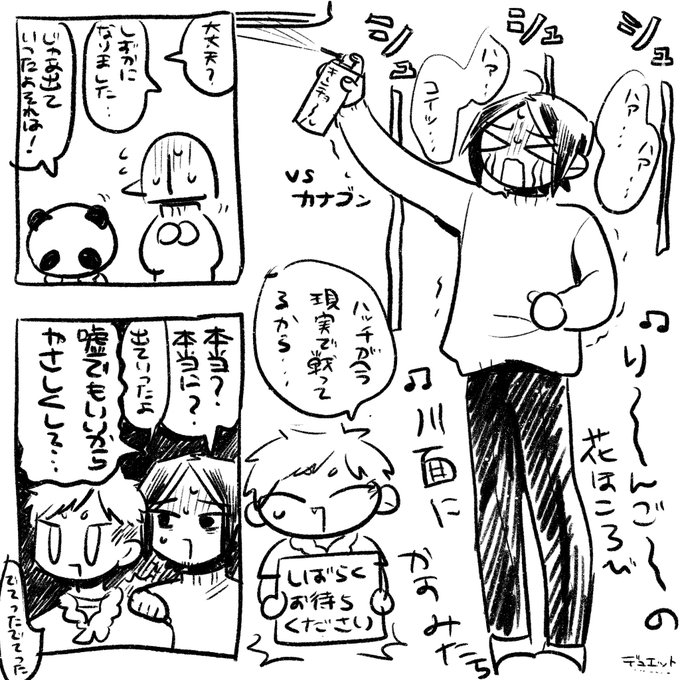 シュ
シュ
シュ
ハァ…
ハァ…
ハァ…
コイツ…
キンチョール
vs
カナブン
♫り〜〜んご〜の
花ほころび
♫川面に
かすみたち
デュエット
ハッチが今
現実で戦って
るから…
しばらく
お待ち
ください
大丈夫?
しずかに
なりました…
じゃあ出て
いったよそれは!
本当?
本当に?
出ていったよ
嘘でもいいから
やさしくして…
でてったでてった